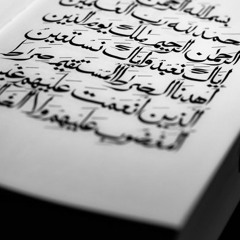 حمد لله رب العالمين
الرحمن الرحيم ملك يوم الدين
إياك نعبد وإياك نستعين
اهدنا الصراط المستقيم صراط
الذين أنعمت عليهم غير
المغضوب عليهم ولا الضا